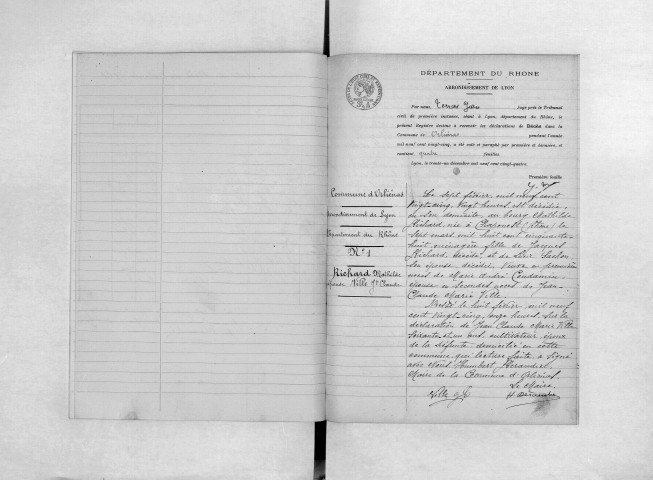 DÉPARTEMENT DU RHÔNE
ARRONDISSEMENT DE LYON
Par nous, Juge près le Tribunal
civil de première instance, séant à Lyon, département du Rhône, le
présent Registre destiné à recevoir les déclarations de Décès dans la
Commune de Orliénas pendant l'année
mil neuf cent vingt-cinq, a été coté et paraphé par première et dernière, et
contient feuilles.
Lyon, le trente-un décembre mil neuf cent vingt-quatre.
Première feuille
Commune d'Orliénas
Arrondissement de Lyon
Département du Rhône
N° 1
Richard Mathilde
épouse Ville Jn Claude
Le sept février mil neuf cent
vingt-cinq, vingt heures est décédée
en son domicile, au bourg Mathilde
Richard, née à Chaponost (Rhône) le
sept mars mil huit cent cinquante
huit ménagère fille de Jacques
Richard, décédé, et de
son épouse, décédée. Veuve en premières
noces de André Condamin
épouse en secondes noces de Jean-
Claude Marie Ville.
Dressé le huit février, mil neuf
cent vingt-cinq, onze heures, sur la
déclaration de Jean Claude Marie Ville
soixante et un ans, cultivateur époux
de la défunte, domicilié en cette
commune qui lecture faite a signé
avec Nous, Humbert
Maire de la Commune d'Orliénas
Le Maire
Ville